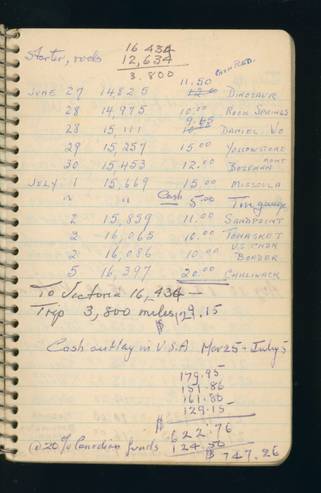 16 434
Starter, rods 12,634
3.800
11.50
JUNE 27 14825 DINOSAUR
28 14,975 10.00 ROCK SPRINGS
9.65
28 15,111 DANIEL
29 15,257 15.00 YELLOWSTONE
30 15,453 12.00 BOZEMAN MONT
JULY 1 15,669 15.00 MISSOULA
" " Cash 5.00 Tire gauge
2 15,839 11.00 SANDPOINT
2 16,065 10.00 TONASKET
U.S. CDN
2 16,086 10.00 BORDER
5 16,397 20.00 CHILIWACK
To Victoria 16,434
Trip 3,800 miles $129.15
Cash outlay in U.S.A Mar 25 - July 5
179.95
151.86
161.80
129.15
$ 622.76
@ 20% Canadian funds 124.50
$ 747.26